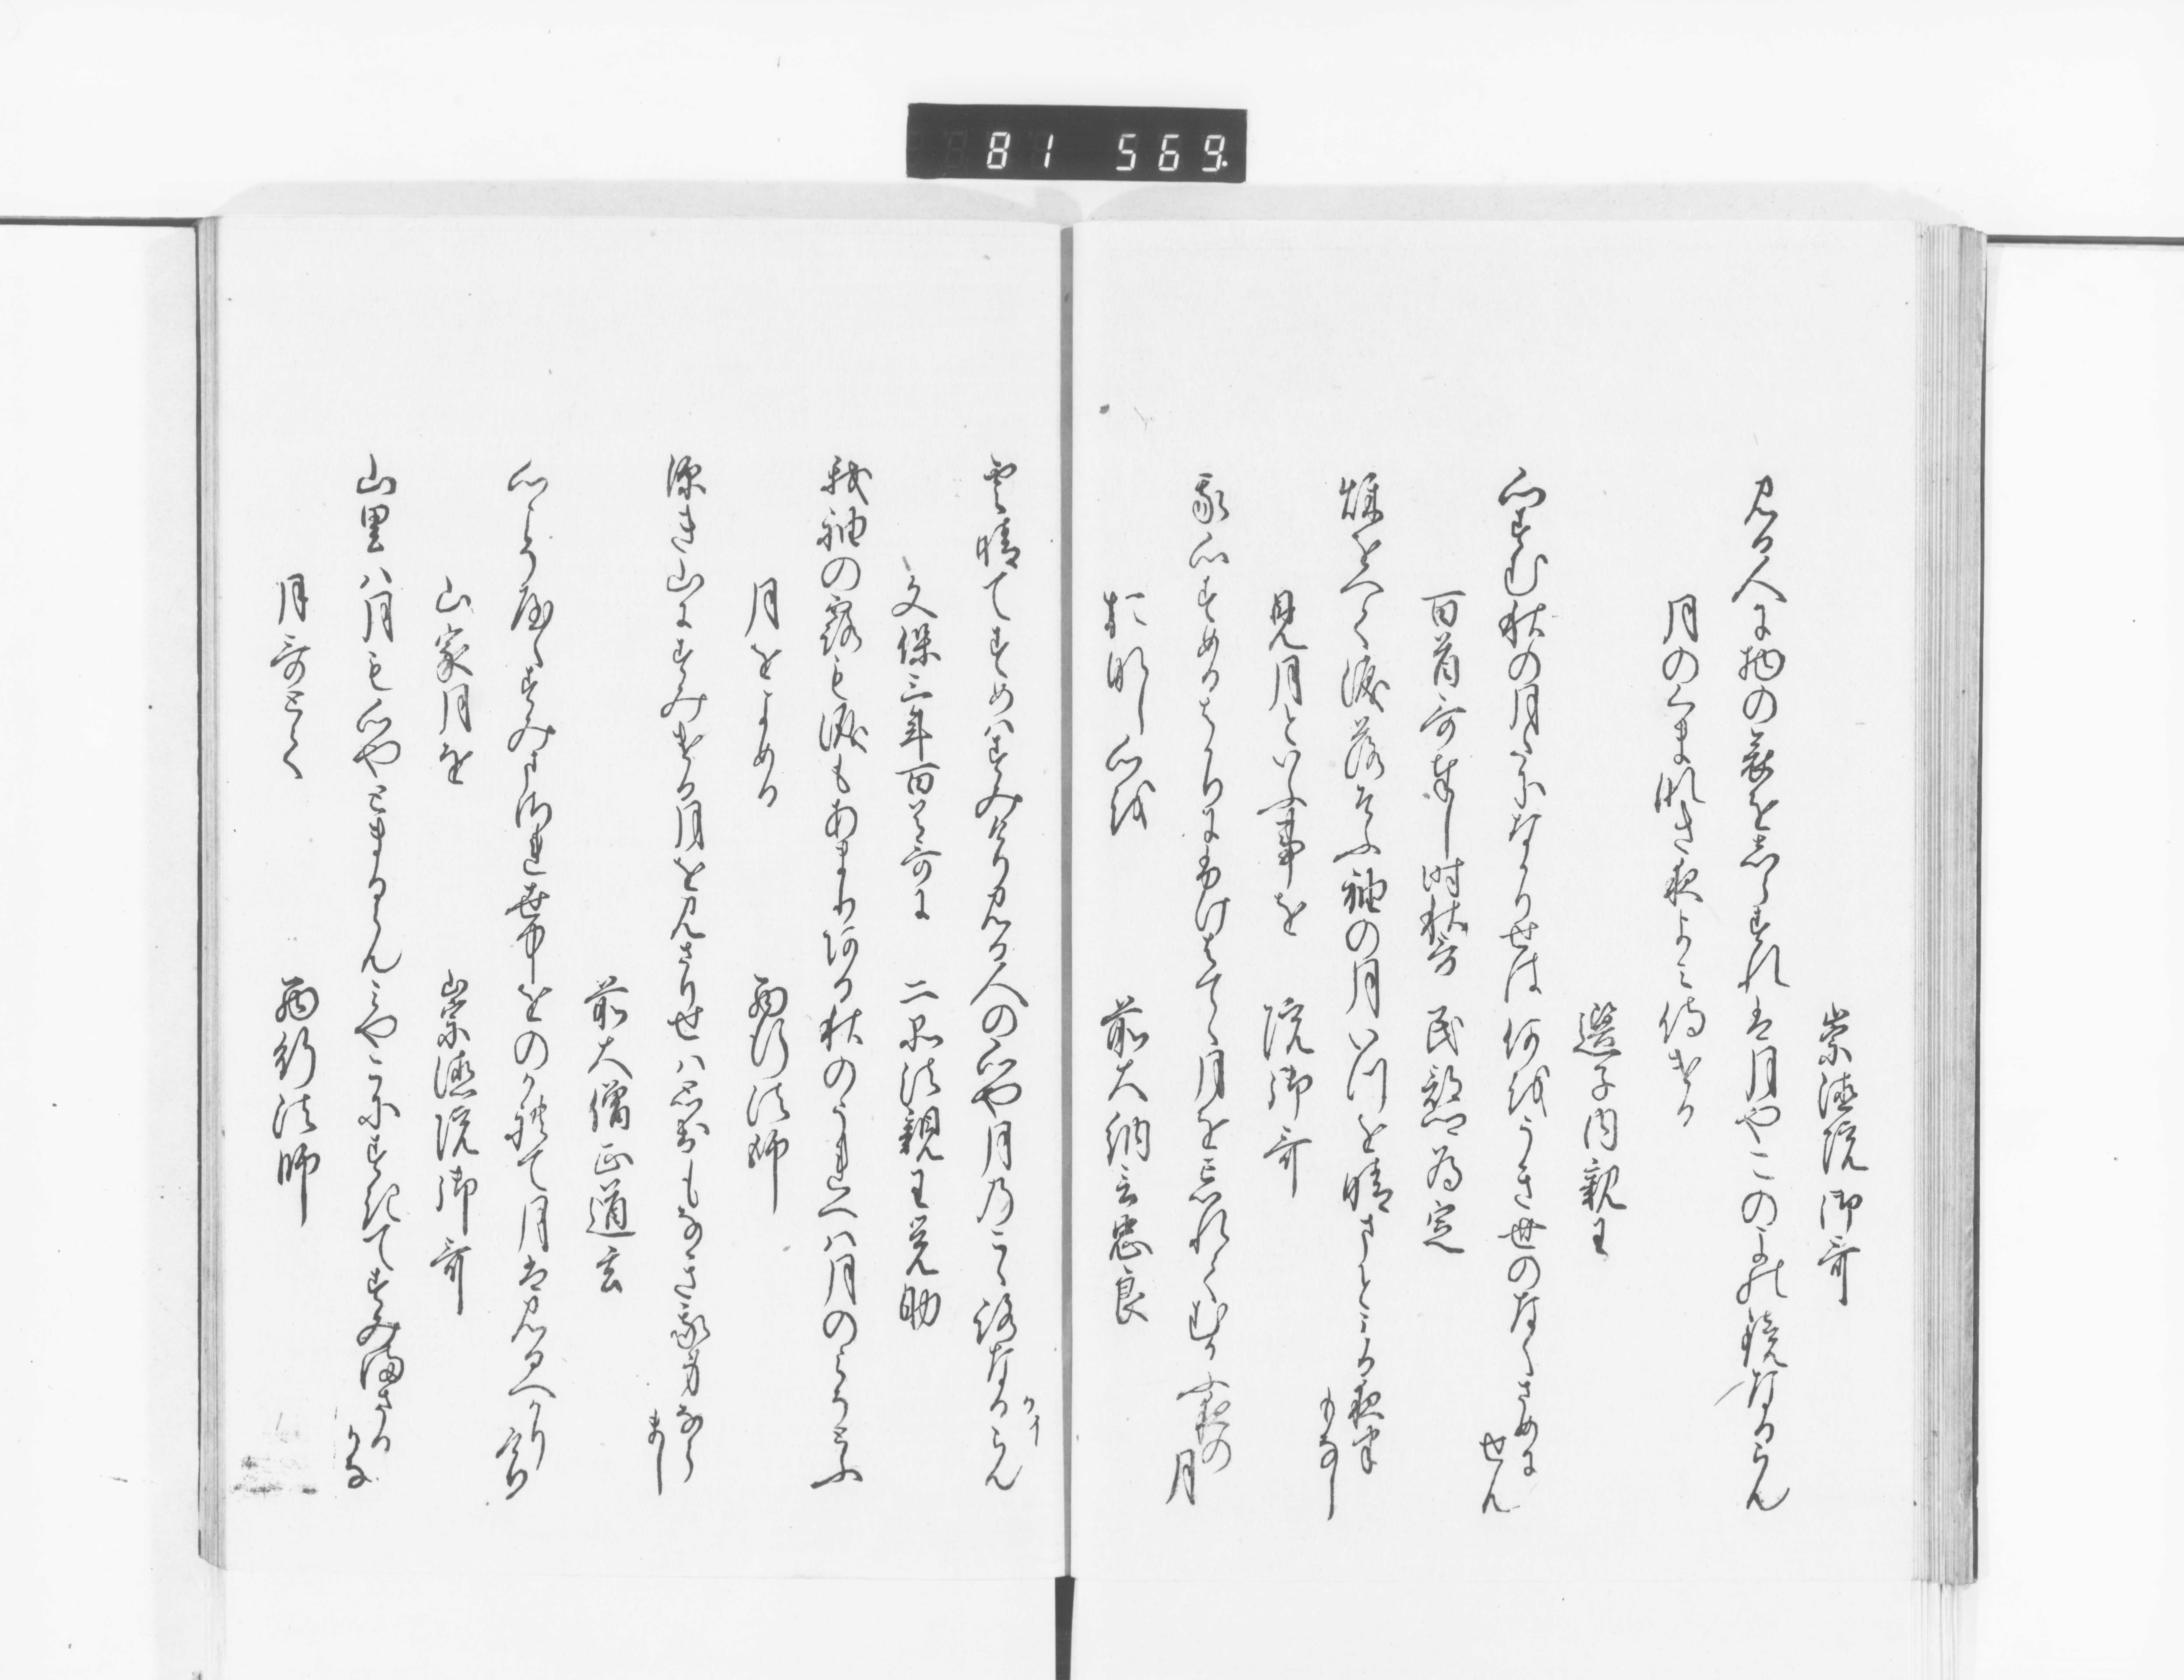 81 569
崇徳院御哥
見る人に物の哀をしらすれは月やこのよの鏡なるらん
月のくまなき夜よみ侍ける
選子内親王
心すむ秋の月たになかりせは何をうき世のなくさめに
せん
百首哥奉し時秋哥 民部卿為定
物をおもふ袖の月いつを晴さとみる夜半
もなし
見月といふ事を 院御哥
我心すめるはかりにふけはてゝ月を忘れてむかふ夜の
月
おなし心を 前大納言忠良
雲晴てすめはすみけり見る人の心や月のこゝろなるらん
かイ
文保三年百首哥に 二品法親王覚助
我袖の露も涙もあまりある秋のうれへは月のみそとふ
月をよめる 西行法師
深き山にすみける月を見さりせは思出もなき我身なら
まし
前大僧正道玄
心こそやかてすみけれ世中をのかれて月は見るへかり
けり
山家月を 崇徳院御哥
山里は月も心やとまるらん都にすきてすみまさる
かな
月哥とて 西行法師